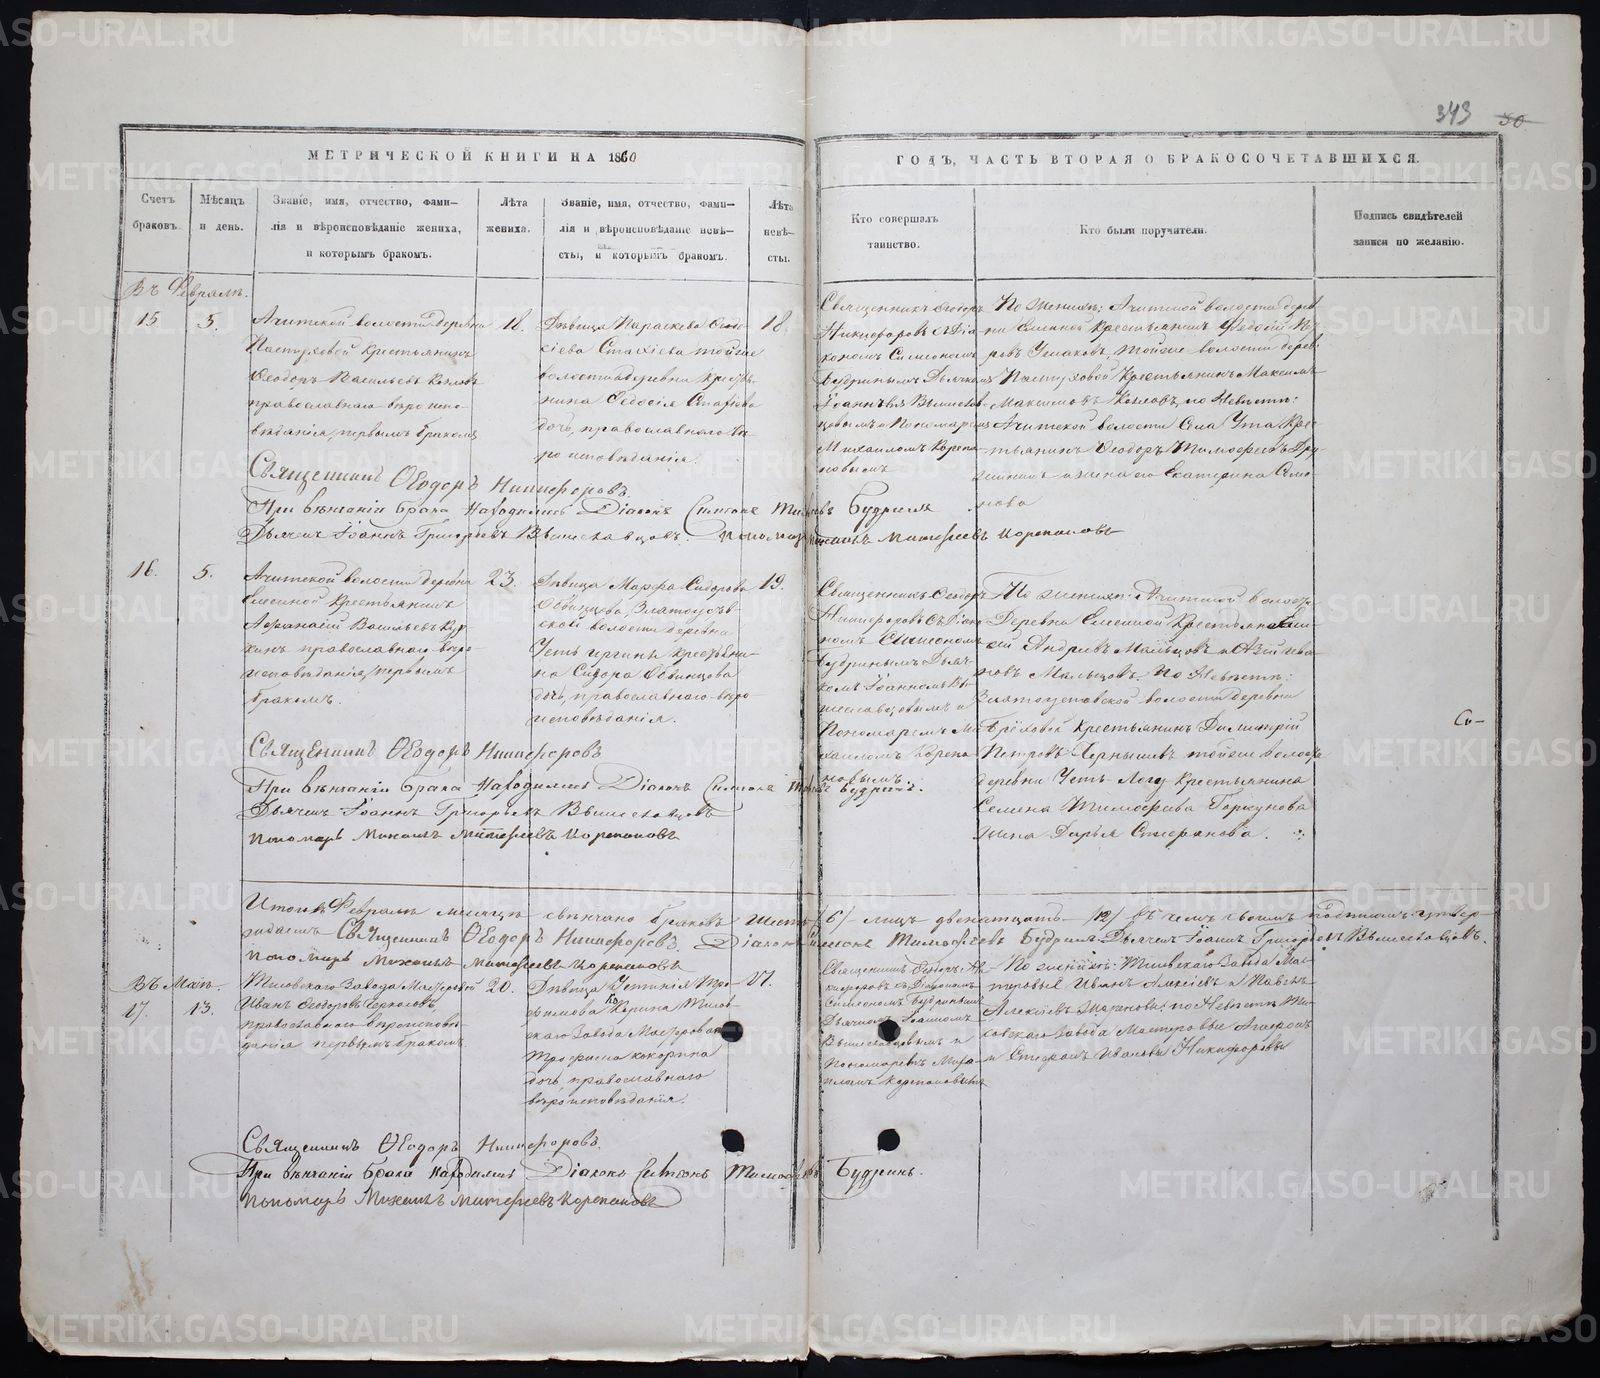 343 50
МЕТРИЧЕСКОЙ КНИГИ НА 1860
ГОДЪ, ЧАСТЬ ВТОРАЯ О БРАКОСОЧЕТАВШИХСЯ.
Счетъ
браковъ.
Мѣсяцъ
и день.
Званіе, имя, отчество, фами-
лія и вѣроисповѣданіе жениха,
и которымъ бракомъ.
Лѣта
жениха.
Званіе, имя, отчество, фами-
лія и вѣроисповѣданіе невѣ-
сты, и которымъ бракомъ.
Лѣта
невѣ-
сты.
Кто совершалъ
таинство.
Кто были поручители.
Подпись свидѣтелей
записи по желанію.
Въ Февралѣ.
15
5.
Ачитской волости деревни
Пастуховой крестьянинъ
Ѳеодоръ Васильевъ Козловъ
православнаго вѣроиспо-
вѣданія, первымъ бракомъ
18.
Дѣвица Параскева Ѳедо-
сіева Стахіева тойже
волости деревни крестья-
нина Ѳедосія Стахіева
дочь, православнаго вѣ-
роисповѣданія.
18.
Священникъ Ѳеодоръ
Никифоровъ съ Діа-
кономъ Симеономъ
Будринымъ Дьячкомъ
Іоанномъ Вышеслав-
цовымъ и Пономаремъ
Михаиломъ Корепа-
новымъ
По женихѣ: Ачитской волости дерев-
ни крестьянинъ Ѳедосій Пет-
ровъ тойже волости дерев.
Пастуховой Крестьянинъ Максимъ
Максимовъ Козловъ, по Невѣстѣ:
Ачитской волости Села Ута Крес-
тьянинъ Ѳеодоръ Тимофеевъ
и жена его Екатерина Семе-
нова
Священникъ Ѳеодоръ Никифоровъ.
При вѣнчаніи брака находились Діаконъ Симеонъ Тимофеевъ Будринъ
Дьячекъ Іоаннъ Григорьевъ Вышеславцовъ. пономарь Михаилъ Матвѣевъ Корепановъ
16.
5.
Ачитской волости деревни
крестьянинъ
Аѳанасій Васильевъ
православнаго вѣро-
исповѣданія, первымъ
бракомъ.
23.
Дѣвица Марѳа Сидорова
Овчинцова Златоустов-
ской волости деревни
Усть иргины крестьяни-
на Сидора Овчинцова
дочь, православнаго вѣро-
исповѣданія.
19.
Священникъ Ѳеодоръ
Никифоровъ съ Діако-
номъ Симеономъ
Будринымъ Дьяч-
комъ Іоанномъ Вы-
шеславцовымъ и
Пономаремъ Ми-
хаиломъ Корепа-
новымъ.
По женихѣ: Ачитской волости
Деревни Крестьяне
Андреевъ Мальцовъ и Ива-
новъ Мальцовъ. По Невѣстѣ:
Златоустовской волости деревни
крестьянинъ Димитрій
Петровъ Чернышевъ тойже волости
деревни Усть-Логу крестьянина
Семена Тимофеева Горкунова
жена Дарья Стефанова.
Со-
Священникъ Ѳеодоръ Никифоровъ
При вѣнчаніи брака находились Діаконъ Симеонъ Тимофеевъ Будринъ.
Дьячекъ Іоаннъ Григорьевъ Вышеславцовъ
пономарь Михаилъ Матвѣевъ Корепановъ
Итого въ Февралѣ мѣсяцѣ свѣнчано браковъ шесть /6/ лицъ двенатцать /12/ въ чемъ своимъ подписомъ утвер-
ждаемъ Священникъ Ѳеодоръ Никифоровъ. Діаконъ Симеонъ Тимофѣевъ Будринъ. Дьячекъ Іоаннъ Григорьевъ Вышеславцовъ.
пономарь Михаилъ Матвѣевъ Корепановъ
Въ Маѣ.
17.
13.
Тисовскаго Завода Мастеровой
Иванъ Ѳеодоровъ
православнаго вѣроисповѣ-
данія первымъ бракомъ.
20.
Дѣвица Устинія Тро-
фимова Кокорина Тисов-
скаго Завода Мастероваго
Трофима Кокорина
дочь, православнаго
вѣроисповѣданія.
17.
Священникъ Ѳеодоръ Ни-
кифоровъ съ Діакономъ
Симеономъ Будринымъ
Дьячкомъ Іоанномъ
Вышеславцовымъ и
Пономаремъ Миха-
иломъ Корепановымъ
По женихѣ: Тисовскаго Завода Мас-
теровые Иванъ Алексѣевъ и Павелъ
Алексѣевъ по Невѣстѣ Ти-
совскаго Завода Мастеровые Агафонъ
и Стефанъ Ивановы Никифоровы
Священникъ Ѳеодоръ Никифоровъ.
При вѣнчаніи брака находились Діаконъ Симеонъ Тимофеевъ Будринъ.
пономарь Михаилъ Матвѣевъ Корепановъ